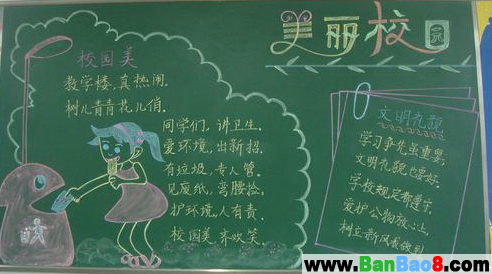 美丽校园
校园美
教学楼,真热闹,
树儿青青花儿俏,
同学们,讲卫生,
爱环境,出新招,
有垃圾,专人管,
见废纸,弯腰捡,
护环境,人有责,
校园美,齐欢笑。
文明礼貌
学习争先虽重要,
文明礼貌也要好,
学校规定都遵守,
爱护公物放心上,
树立新风我做到
www.BanBao8.com